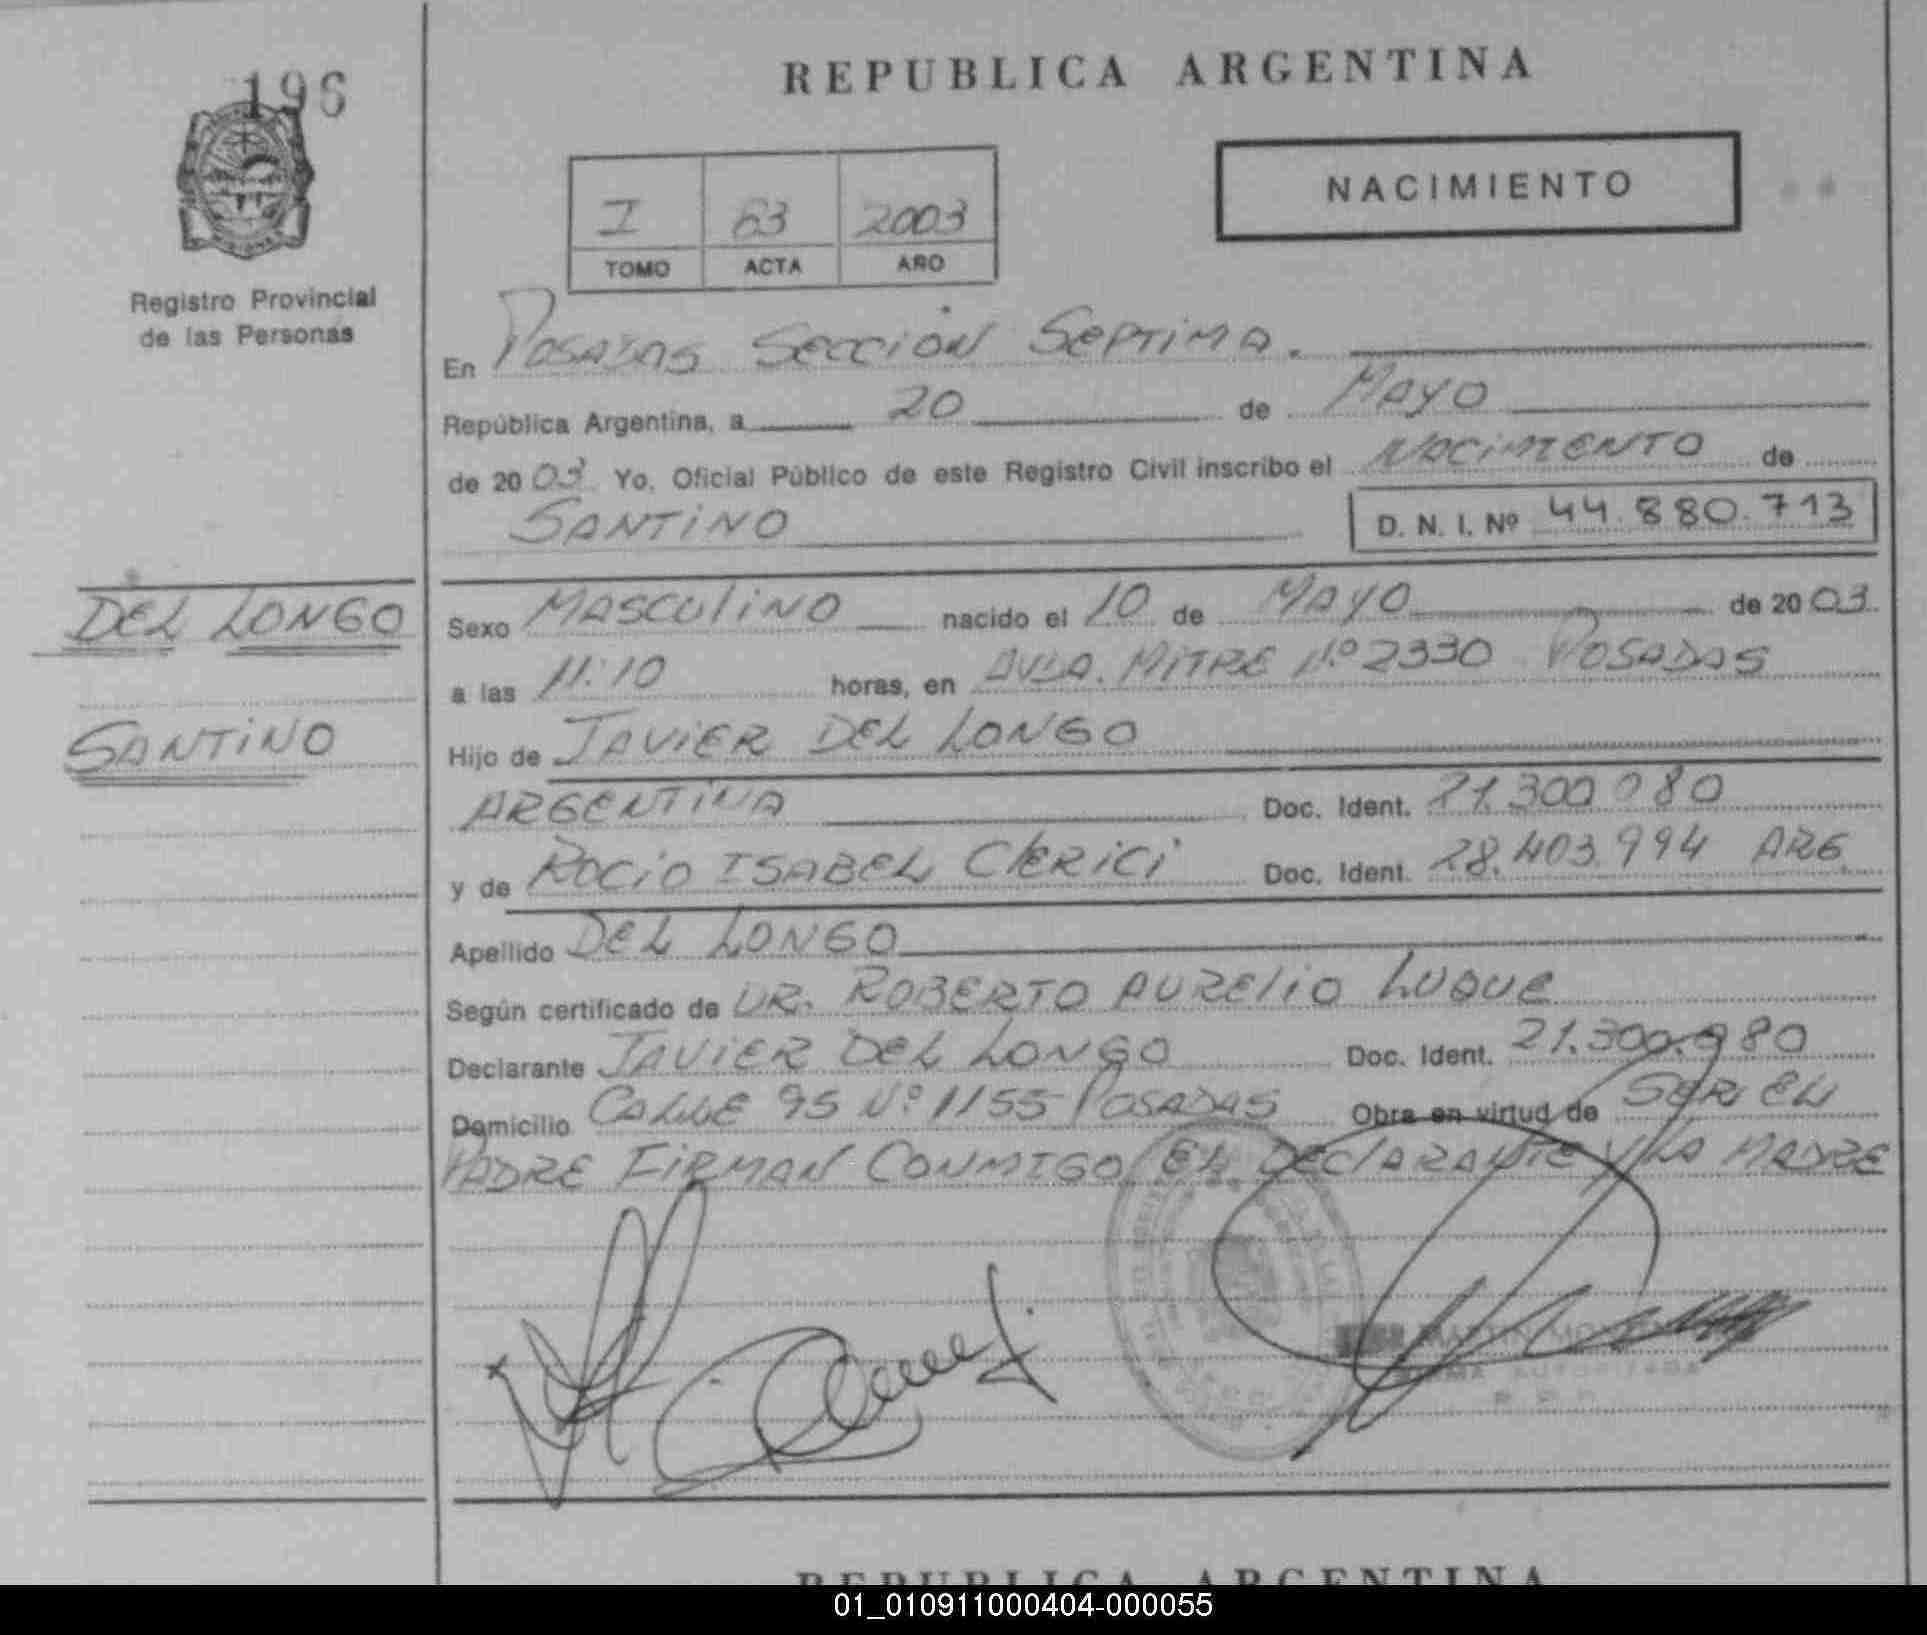 196
REPUBLICA ARGENTINA
NACIMIENTO
I 63 2003
TOMO ACTA AÑO
Registro Provincial
de las Personas
En POSADAS SECCION SEPTIMA.
República Argentina, a 20 de MAYO
de 2003 Yo, Oficial Público de este Registro Civil inscribo el NACIMIENTO de
SANTINO D. N. I. Nº 44.880.713
DEL LONGO
SANTINO
Sexo MASCULINO nacido el 10 de MAYO de 2003
a las 11:10 horas, en AVDA. MITRE Nº 2330 POSADAS
Hijo de JAVIER DEL LONGO
ARGENTINA Doc. Ident. 21.300.080
y de ROCIO ISABEL CLERICI Doc. Ident. 28.403.994 ARG.
Apellido DEL LONGO
Según certificado de DR. ROBERTO AURELIO LUQUE
Declarante JAVIER DEL LONGO Doc. Ident. 21.300.080
Domicilio CALLE 95 Nº 1155 POSADAS Obra en virtud de SER EL
PADRE FIRMAN CONMIGO EL DECLARANTE Y LA MADRE
REPUBLICA ARGENTINA
01_010911000404-000055